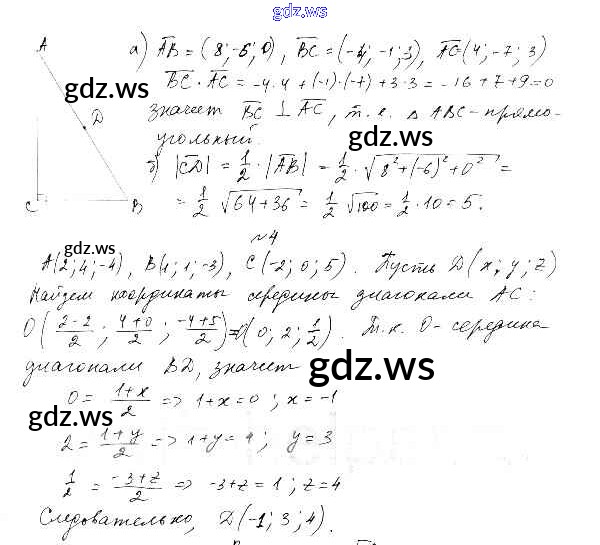 gdz.ws
A
D
C
B
а) AB = (8; -6; 0), BC = (-4; -1; 3), AC = (4; -7; 3)
BC · AC = -4·4 + (-1)·(-7) + 3·3 = -16 + 7 + 9 = 0
gdz.ws
значит BC ⊥ AC, т.е. Δ ABC - прямо-
угольный.
gdz.ws
б) |CD| = 1/2 · |AB| = 1/2 · √(8² + (-6)² + 0²) =
= 1/2 √(64 + 36) = 1/2 √100 = 1/2 · 10 = 5.
№4
gdz.ws
A(2; 4; -4), B(1; 1; -3), C(-2; 0; 5). Пусть D(x; y; z)
Найдем координаты середины диагонали AC:
O((2-2)/2; (4+0)/2; (-4+5)/2) = O(0; 2; 1/2). Т.к. O - середина
диагонали BD, значит
gdz.ws
0 = (1+x)/2 => 1+x = 0; x = -1
gdz.ws
2 = (1+y)/2 => 1+y = 4; y = 3
1/2 = (-3+z)/2 => -3+z = 1; z = 4
Следовательно, D(-1; 3; 4).
gdz.ws